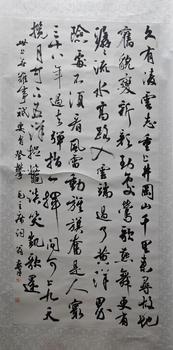 久有凌雲志重上井岡山千里来尋故地
舊貌變新顔到處鶯歌燕舞更有
潺潺流水高路入雲端過了黄洋界
險處不須看風雷動旌旗奮是人寰
三十八年過去彈指一揮間可上九天
攬月可下五洋捉鱉談笑凱歌還
世上無難事只要肯登攀 毛主席詞